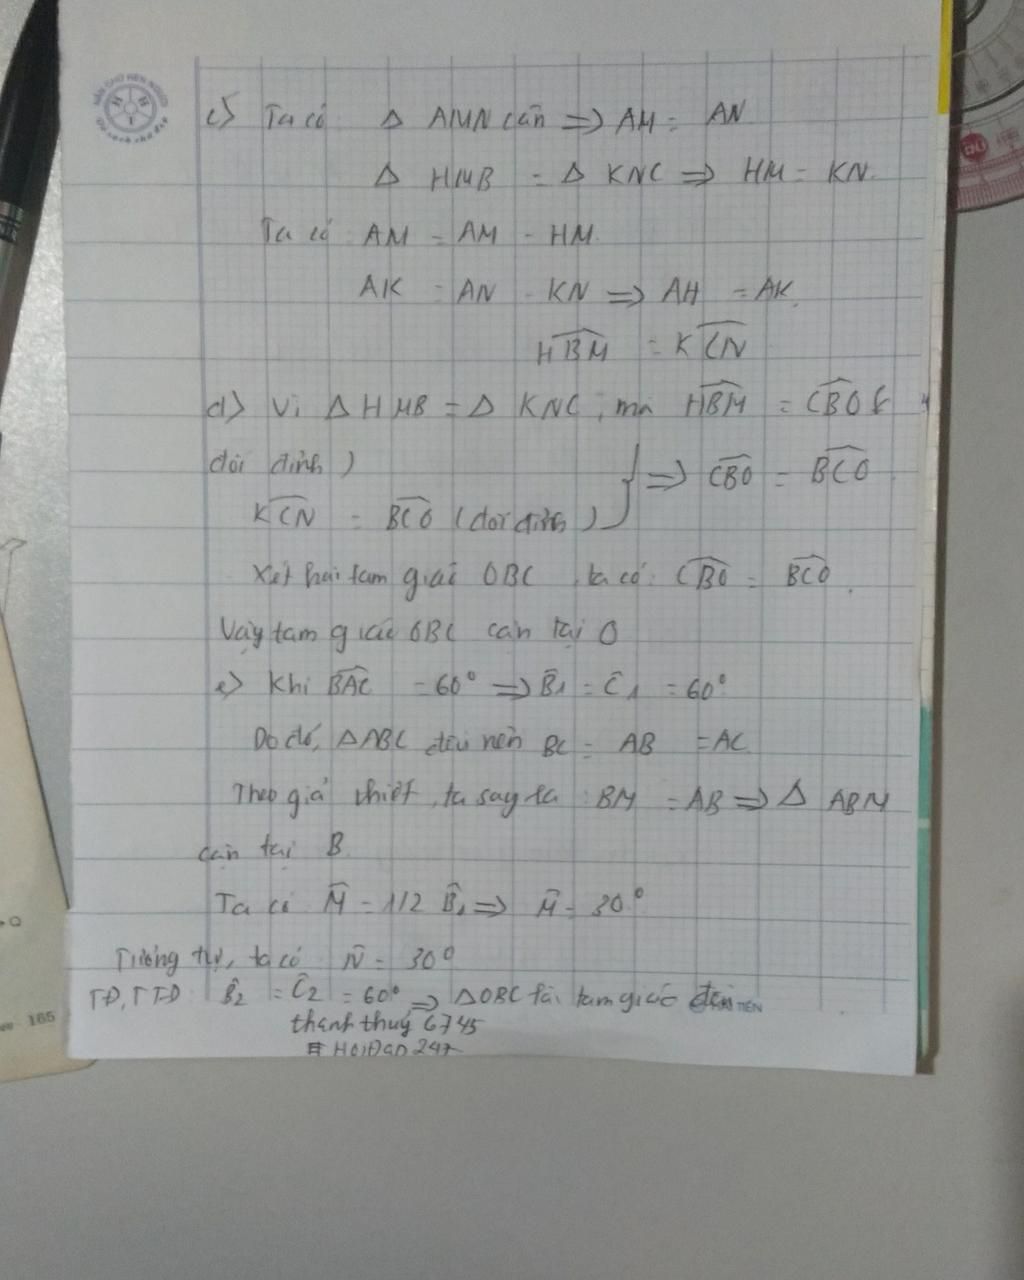 c) Ta có Δ AMN cân => AM = AN
Δ HMB = Δ KNC => HM = KN.
Ta có AM = AM - HM.
AK = AN - KN => AH = AK.
HBM = KCN
d) Vì Δ HMB = Δ KNC ; mà HBM = CBO (
đối đỉnh )
} => CBO = BCO
KCN = BCO (đối đỉnh )
Xét hai tam giác OBC ta có: CBO = BCO.
Vậy tam giác OBC cân tại O
e) Khi BAC = 60° => B1 = C1 = 60°
Do đó, ΔABC đều nên BC = AB = AC
Theo giả thiết, ta say ta : BM = AB => Δ ABM
cân tại B
Ta có M = 1/2 B1 => M = 30°
Tương tự, ta có N = 30°
TĐ, TTD: B2 = C2 = 60° => ΔOBC là tam giác đều
HẢI TIẾN
thanh thuý 6745
# HoiDap 247
165